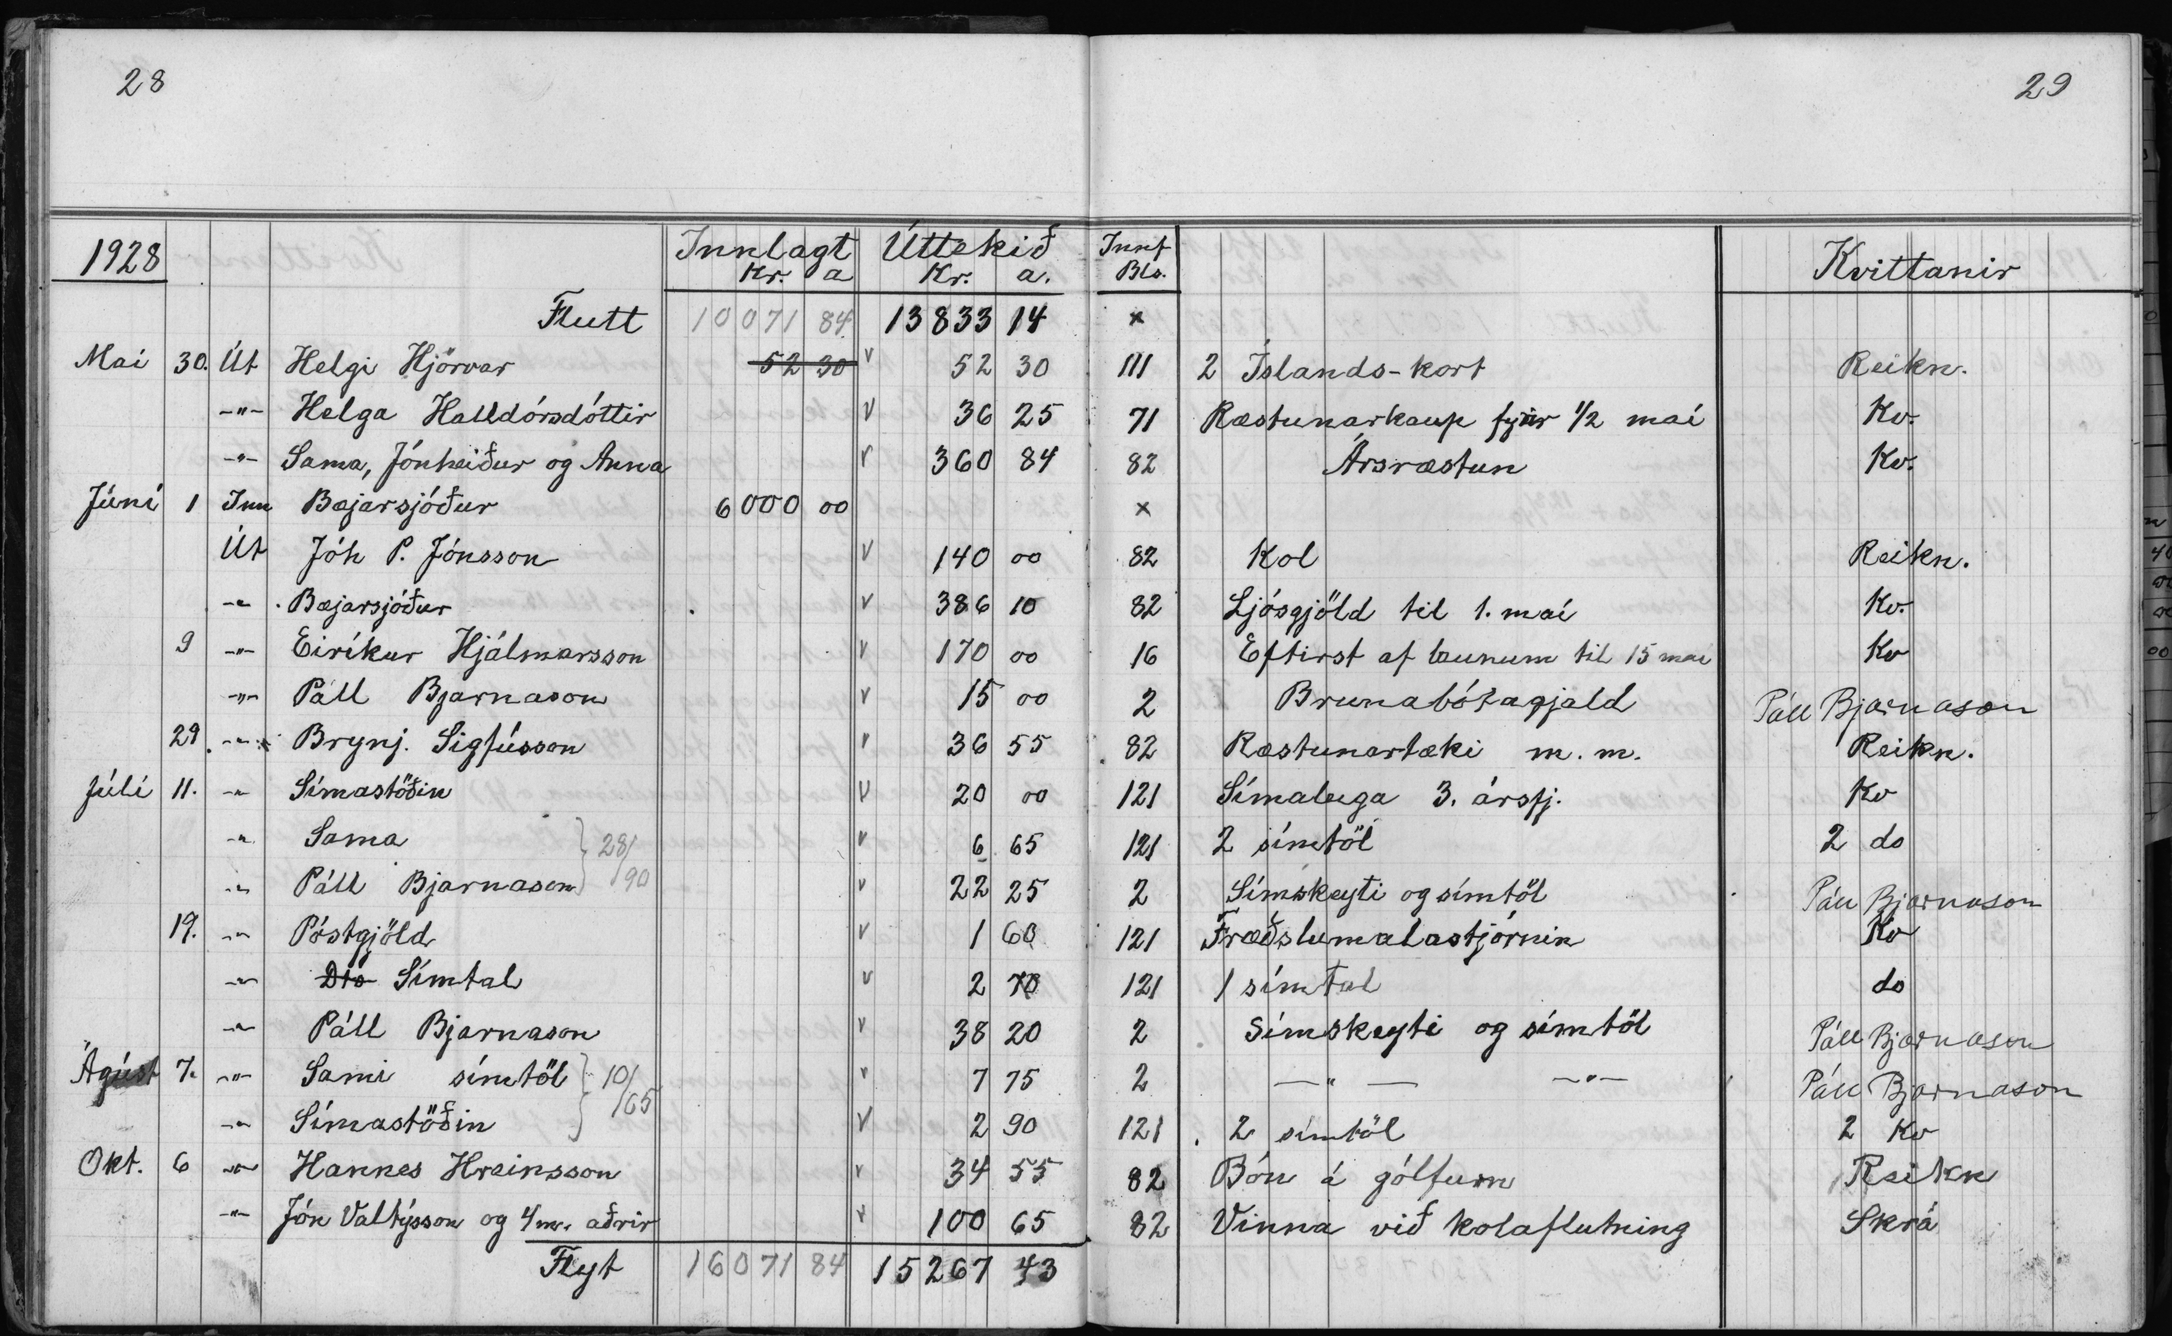 28
29
1928 Innlagt Úttekið Innf Kvittanir
Kr. a Kr. a. Bls.
Flutt 10071 84 13833 14 ×
Mai 30. Út Helgi Hjörvar 52 30 v 52 30 111 2 Íslands-kort Reikn.
-"- Helga Halldórsdóttir v 36 25 71 Ræstunarkaup fyrir 1/2 maí Kv.
-"- Sama, Jónheiður og Anna v 360 84 82 Ársræstun Kv.
Júní 1 Inn Bæjarsjóður 6000 00 ×
Út Jóh P. Jónsson v 140 00 82 Kol Reikn.
-"- Bæjarsjóður v 386 10 82 Ljósgjöld til 1. maí Kv.
9 -"- Eiríkur Hjálmarsson v 170 00 16 Eftirst af launum til 15 maí Kv
-"- Páll Bjarnason v 15 00 2 Brunabótagjald Páll Bjarnason
29. -"- Brynj. Sigfússon v 36 55 82 Ræstunartæki m. m. Reikn.
Júlí 11. -"- Símastöðin v 20 00 121 Símaleiga 3. ársfj. Kv
-"- Sama } 28/90 v 6 65 121 2 símtöl 2 do
-"- Páll Bjarnason v 22 25 2 Símskeyti og símtöl Páll Bjarnason
19. -"- Póstgjöld v 1 60 121 Fræðslumalastjórnin Kv
-"- Dto Símtal v 2 70 121 1 símtal do
-"- Páll Bjarnason v 38 20 2 Símskeyti og símtöl Páll Bjarnason
Ágúst 7. -"- Sami símtöl } 10/65 v 7 75 2 -"- -"- Páll Bjarnason
-"- Símastöðin v 2 90 121 2 símtöl 2 Kv
Okt. 6 -"- Hannes Hreinsson v 34 55 82 Bón á gólfum Reikn
-"- Jón Valtýsson og 4 m. aðrir v 100 65 82 Vinna við kolaflutning Skrá
Flyt 16071 84 15267 43